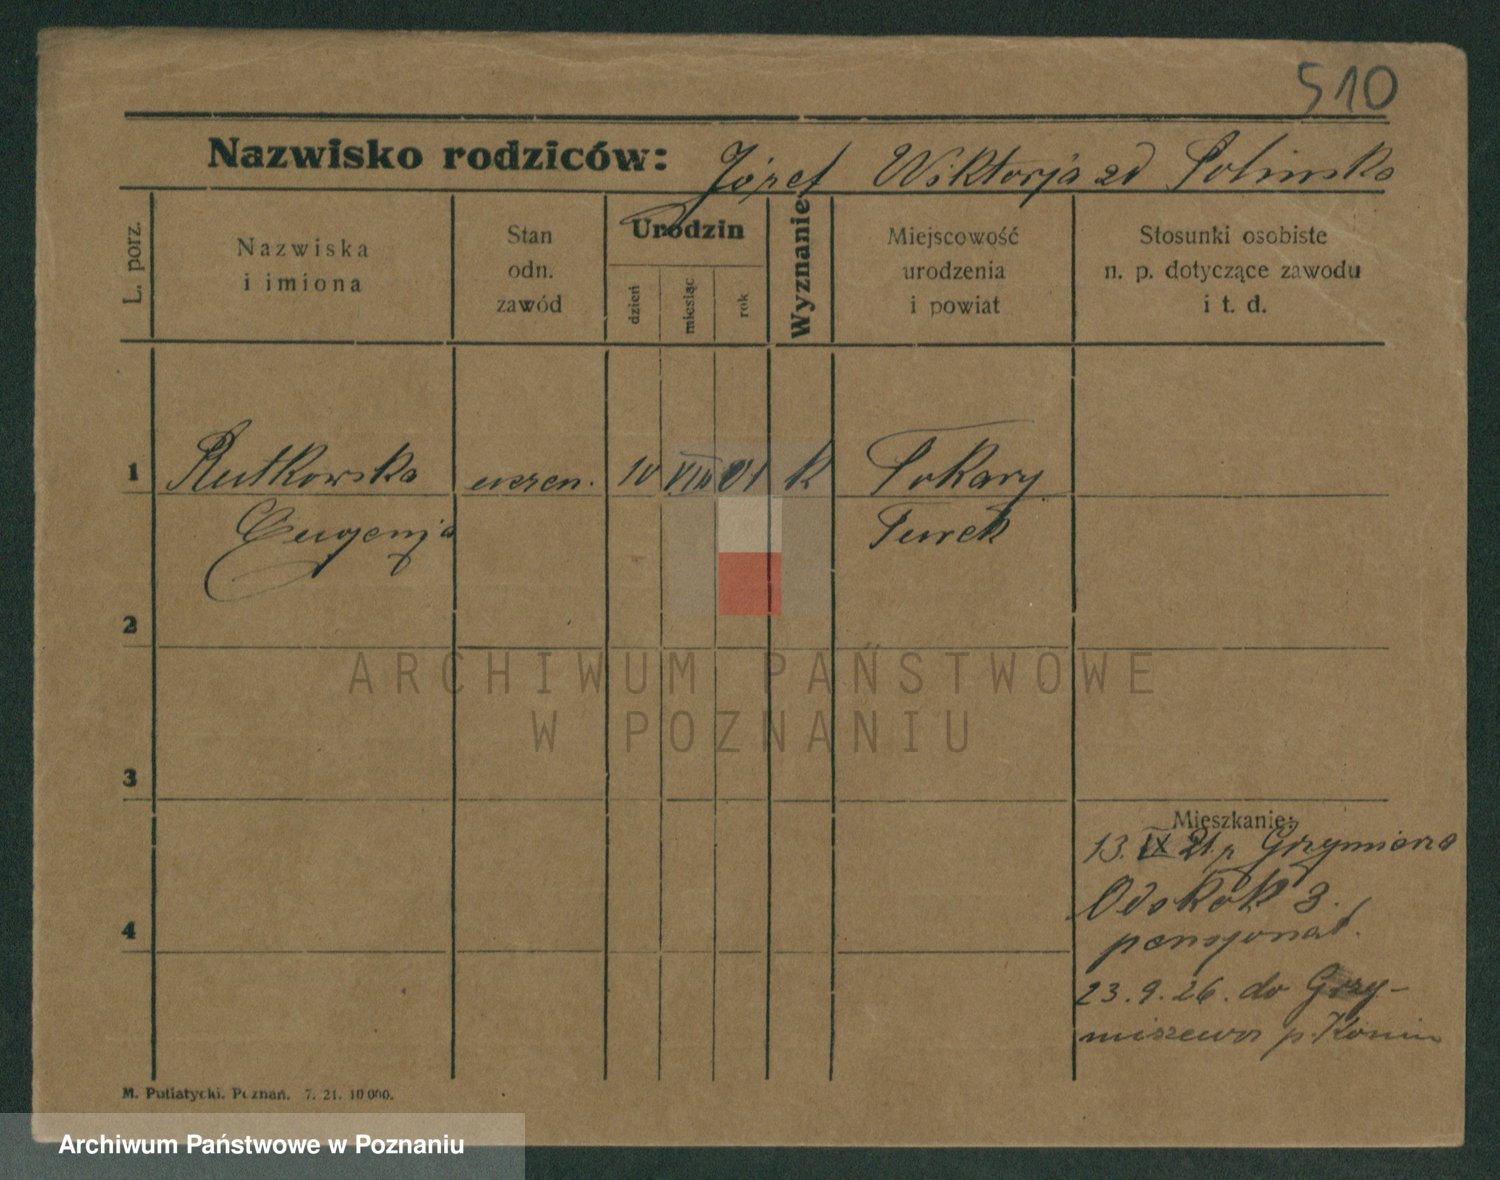 510
Nazwisko rodziców: Józef Wiktorja zd Solinska
L. porz.
Nazwiska
i imiona
Stan
odn.
zawód
Urodzin
dzień
miesiąc
rok
Wyznanie
Miejscowość
urodzenia
i powiat
Stosunki osobiste
n. p. dotyczące zawodu
i t. d.
1 Rutkowska uczen. 10 VIII 01 k Tokary
Eugenja Turek
2
3
4
Mieszkanie:
13. IX 21 z
Odskok 3.
pensjonat.
23.9.26. do Grzy-
miszewa p. Konin
M. Putiatycki. Poznań. 7. 21. 10 000.
ARCHIWUM PAŃSTWOWE
W POZNANIU
Archiwum Państwowe w Poznaniu